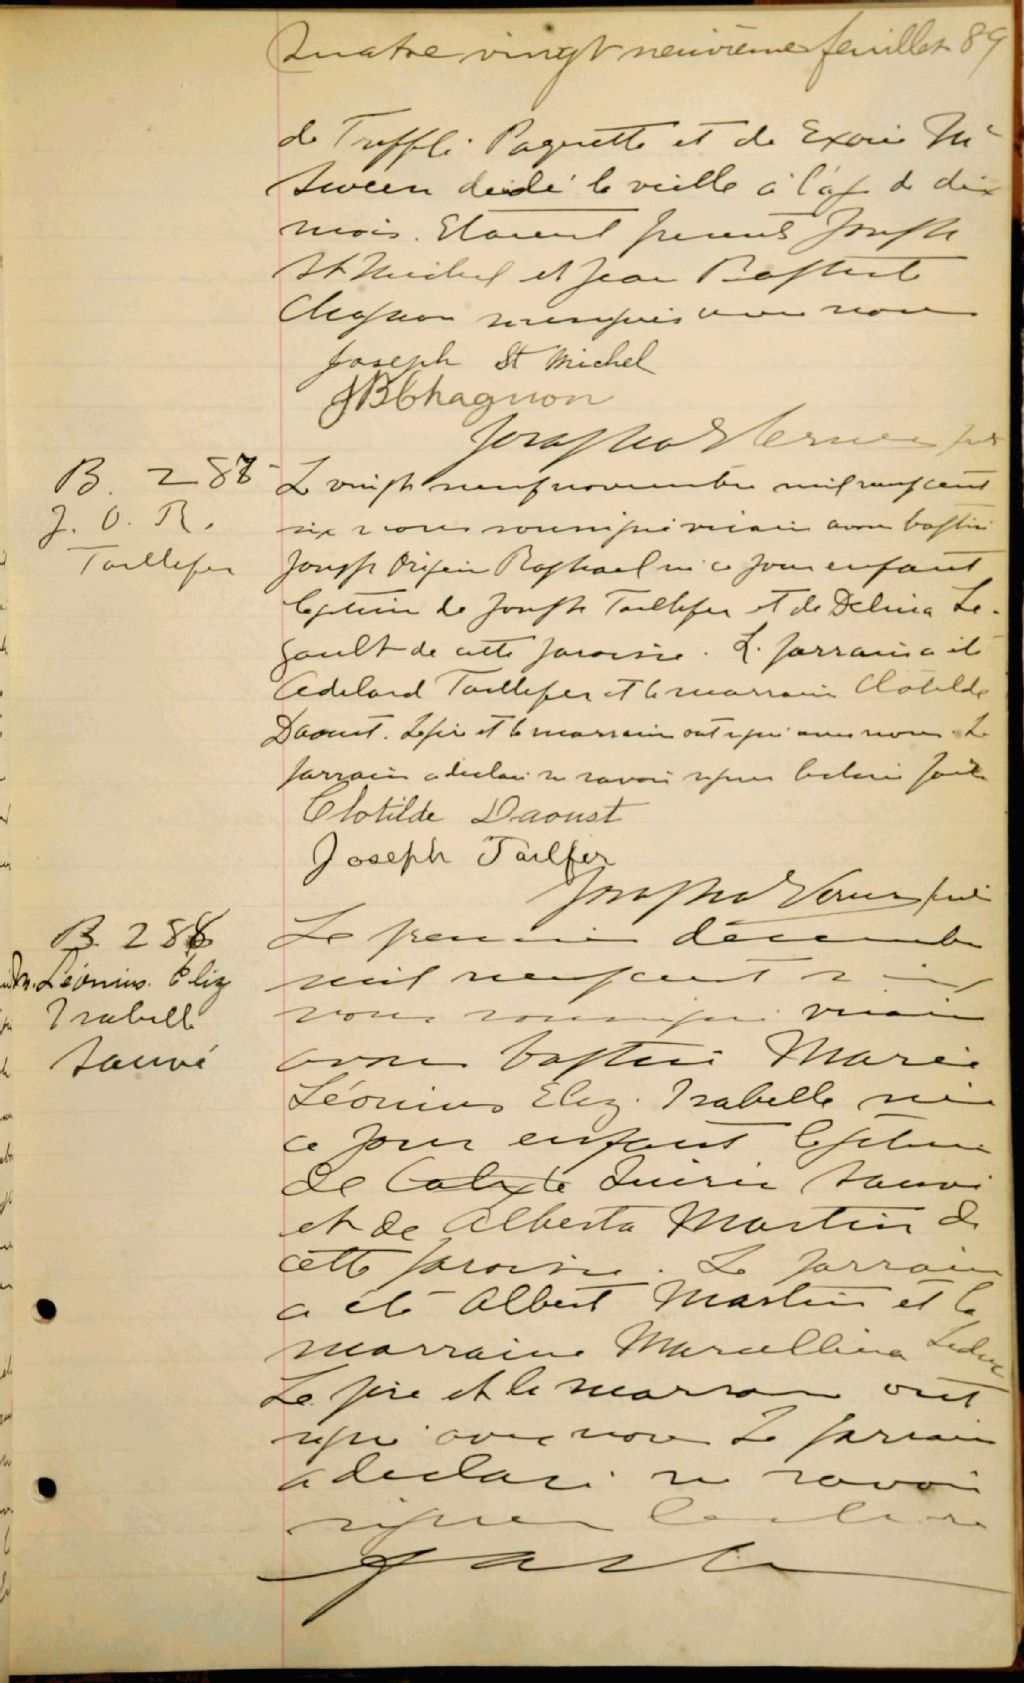 Quatre vingt neuvième feuillet 89
de Treffle Paquette et de Exorie Mc
Sween décédé la veille à l'age de dix
mois. Etaient présents Joseph
St Michel et Jean Baptiste
Chagnon soussignés avec nous
Joseph St Michel
JBChagnon
B. 287
J. O. R.
Taillefer
Le vingt neuf novembre mil neuf cent
six nous soussigné vicaire avons baptisé
Joseph Origène Raphael né ce jour enfant
legitime de Joseph Taillefer et de Delina Le-
gault de cette paroisse. Le parrain a été
Adelard Taillefer et la marraine Clotilde
Daoust. Le père et la marraine ont signé avec nous. Le
parrain a déclaré ne savoir signer lecture faite
Clotilde Daoust
Joseph Tailfer
B. 288
M. Léonius. Eliz
Isabelle
Sauvé
Le premier décembre
mil neuf cent six
nous soussigné vicaire
avons baptisé Marie
Léonius Eliz. Isabelle née
ce jour enfant legitime
de Calixte Sauvé
et de Alberta Martin de
cette paroisse. Le parrain
a été Albert Martin et la
marraine Marcellina Leduc
Le père et la marraine ont
signé avec nous Le parrain
a déclaré ne savoir
signer lecture
faite